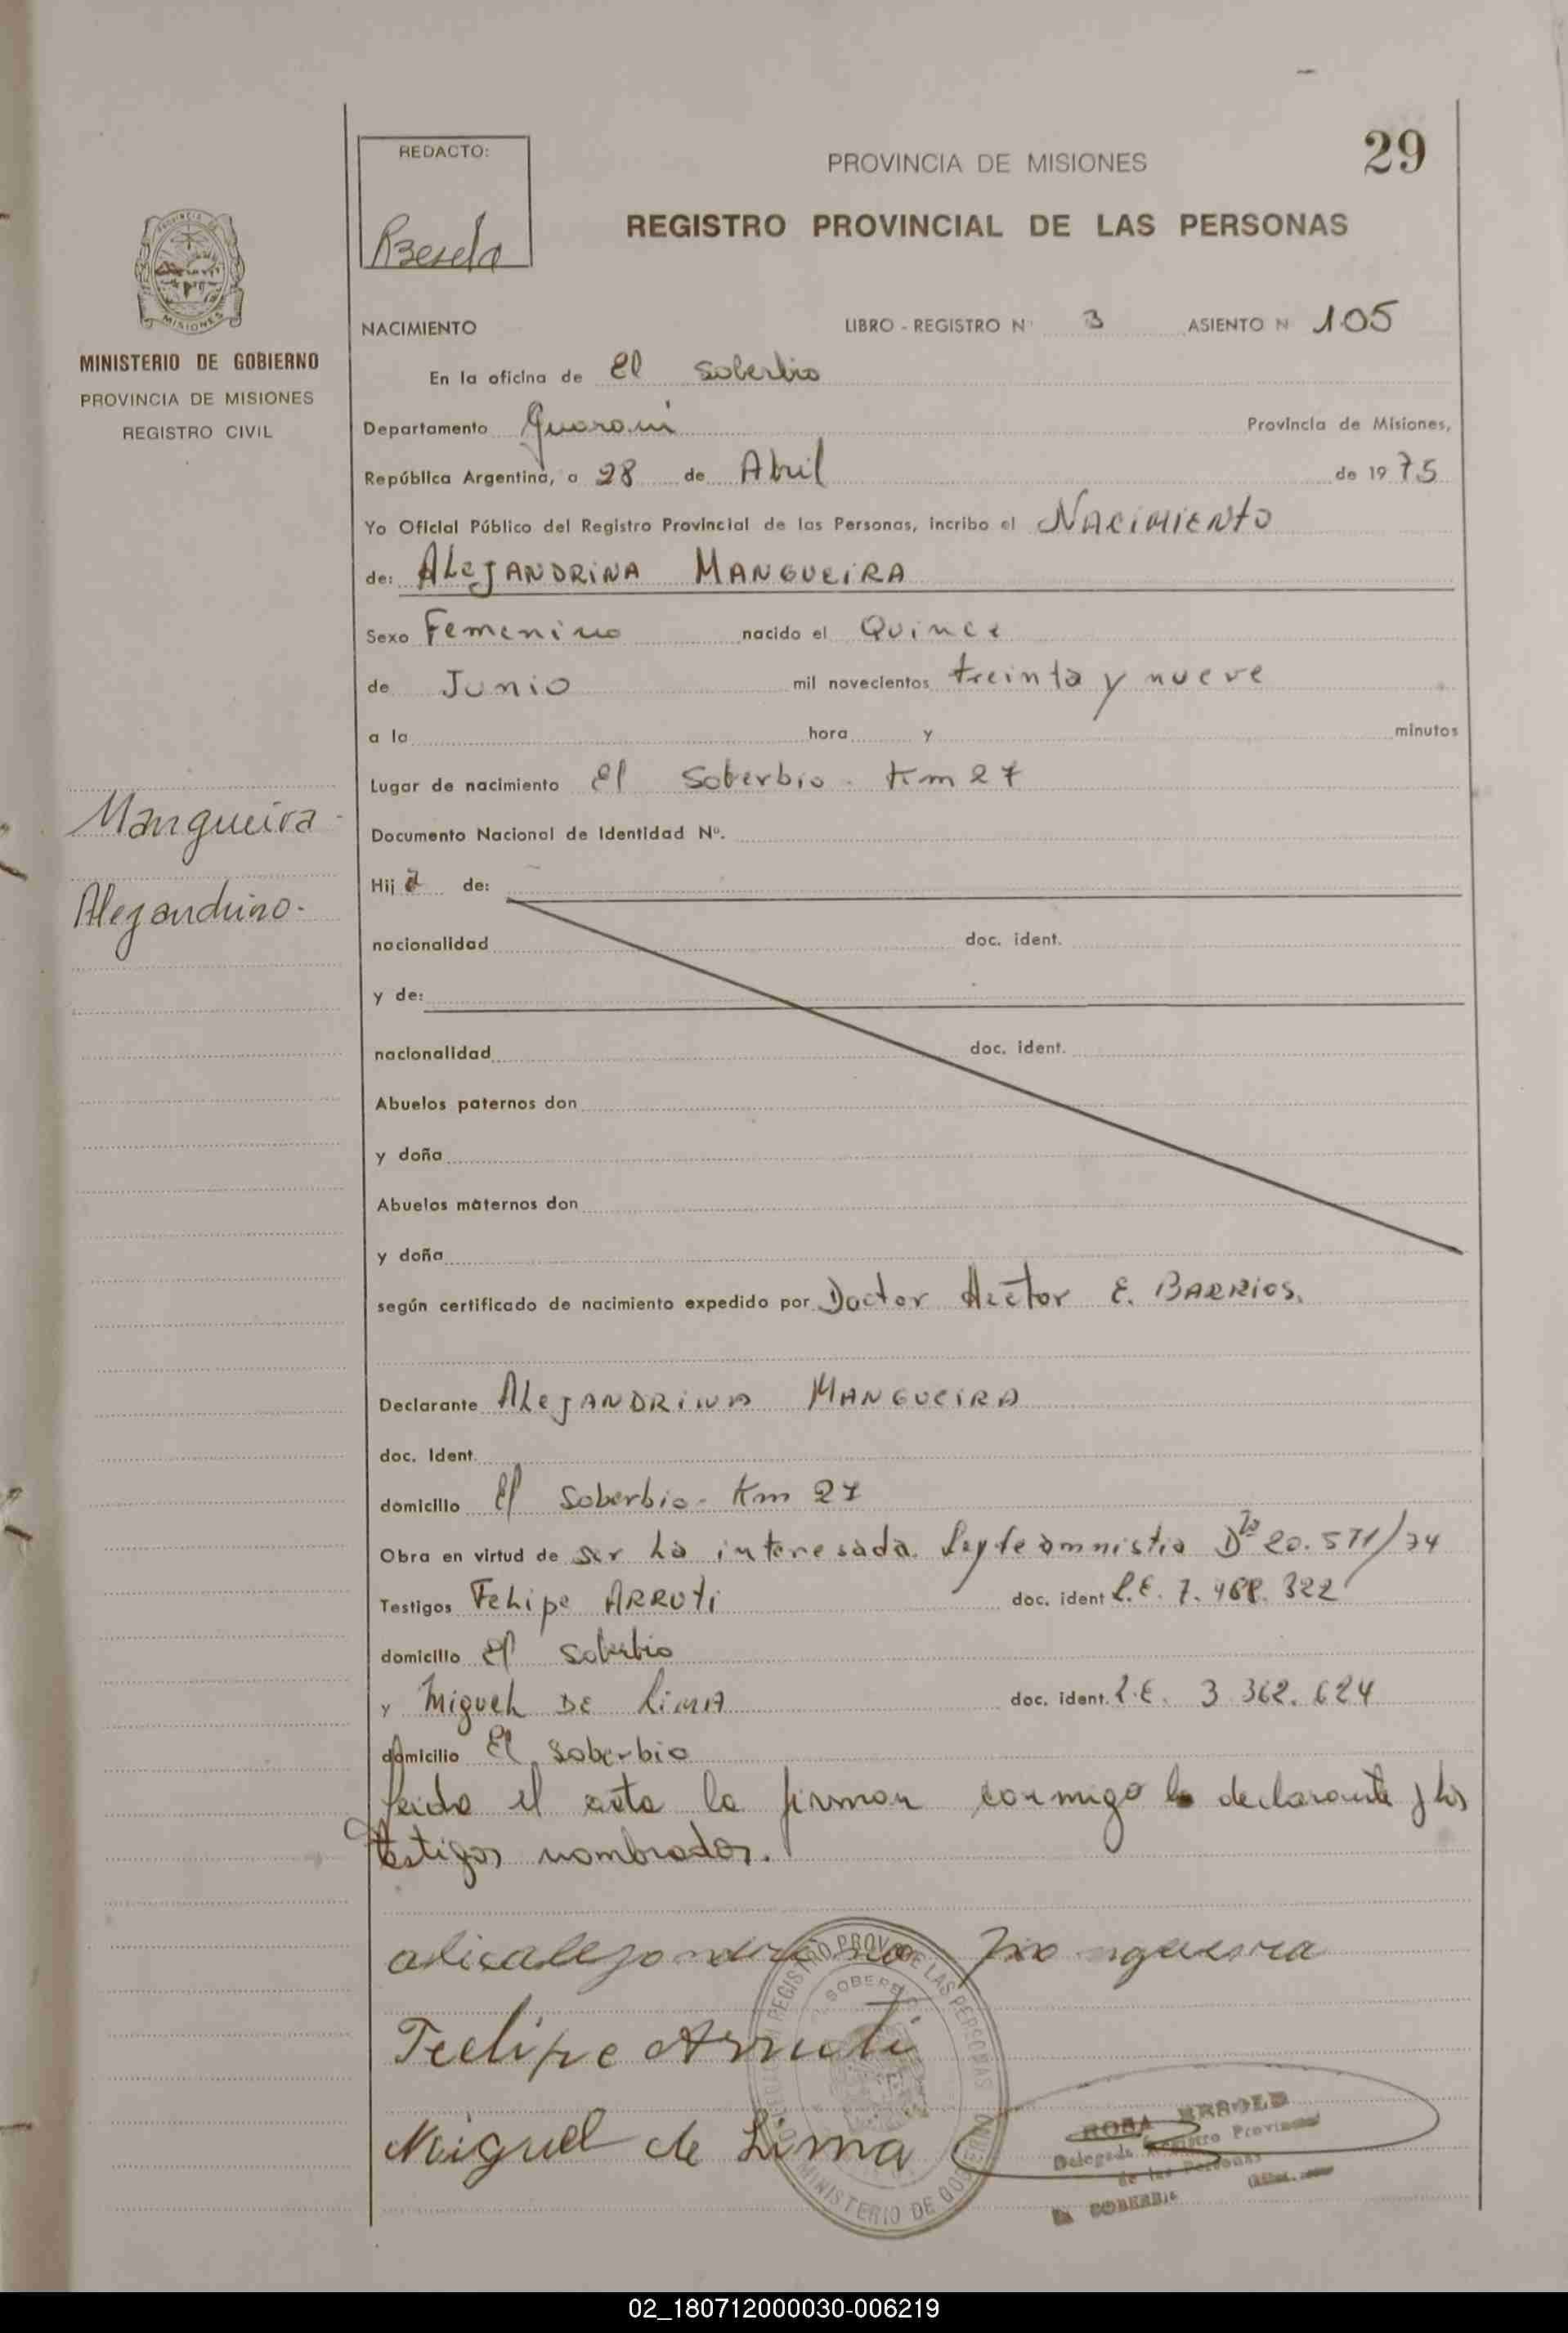 29
REDACTO:
PROVINCIA DE MISIONES
REGISTRO PROVINCIAL DE LAS PERSONAS
MISIONES
MINISTERIO DE GOBIERNO
PROVINCIA DE MISIONES
REGISTRO CIVIL
NACIMIENTO LIBRO - REGISTRO N° 3 ASIENTO N 105
En la oficina de El Soberbio
Departamento Guaraní Provincia de Misiones,
República Argentina, a 28 de Abril de 1975
Yo Oficial Público del Registro Provincial de las Personas, incribo el NACIMIENTO
de: ALEJANDRINA MANGUEIRA
Sexo Femenino nacido el Quince
de Junio mil novecientos treinta y nueve
a la hora y minutos
Lugar de nacimiento El Soberbio - Km 27
Mangueira -
Alejandrina.
Documento Nacional de Identidad Nº.
Hija de:
nacionalidad doc. ident.
y de:
nacionalidad doc. ident.
Abuelos paternos don
y doña
Abuelos maternos don
y doña
según certificado de nacimiento expedido por Doctor Hector E. BARRIOS.
Declarante ALEJANDRINA MANGUEIRA
doc. Ident.
domicilio El Soberbio - Km 27
Obra en virtud de ser la interesada. Ley de amnistia Dto 20.571/74
Testigos Felipe ARRUTi doc. ident L.E. 7.468.322
domicilio El Soberbio
y Miguel DE LIMA doc. ident. L.E. 3.362.624
domicilio El Soberbio
leida el acta la firman conmigo la declarante y los
testigos nombrados.
Feelipe Arruti
Miguel de Lima
REGISTRO PROV. DE LAS PERSONAS
MINISTERIO DE GOBIERNO
ROSA
Delegada Registro Provincial
de las Personas
SOBERBIO
02_180712000030-006219